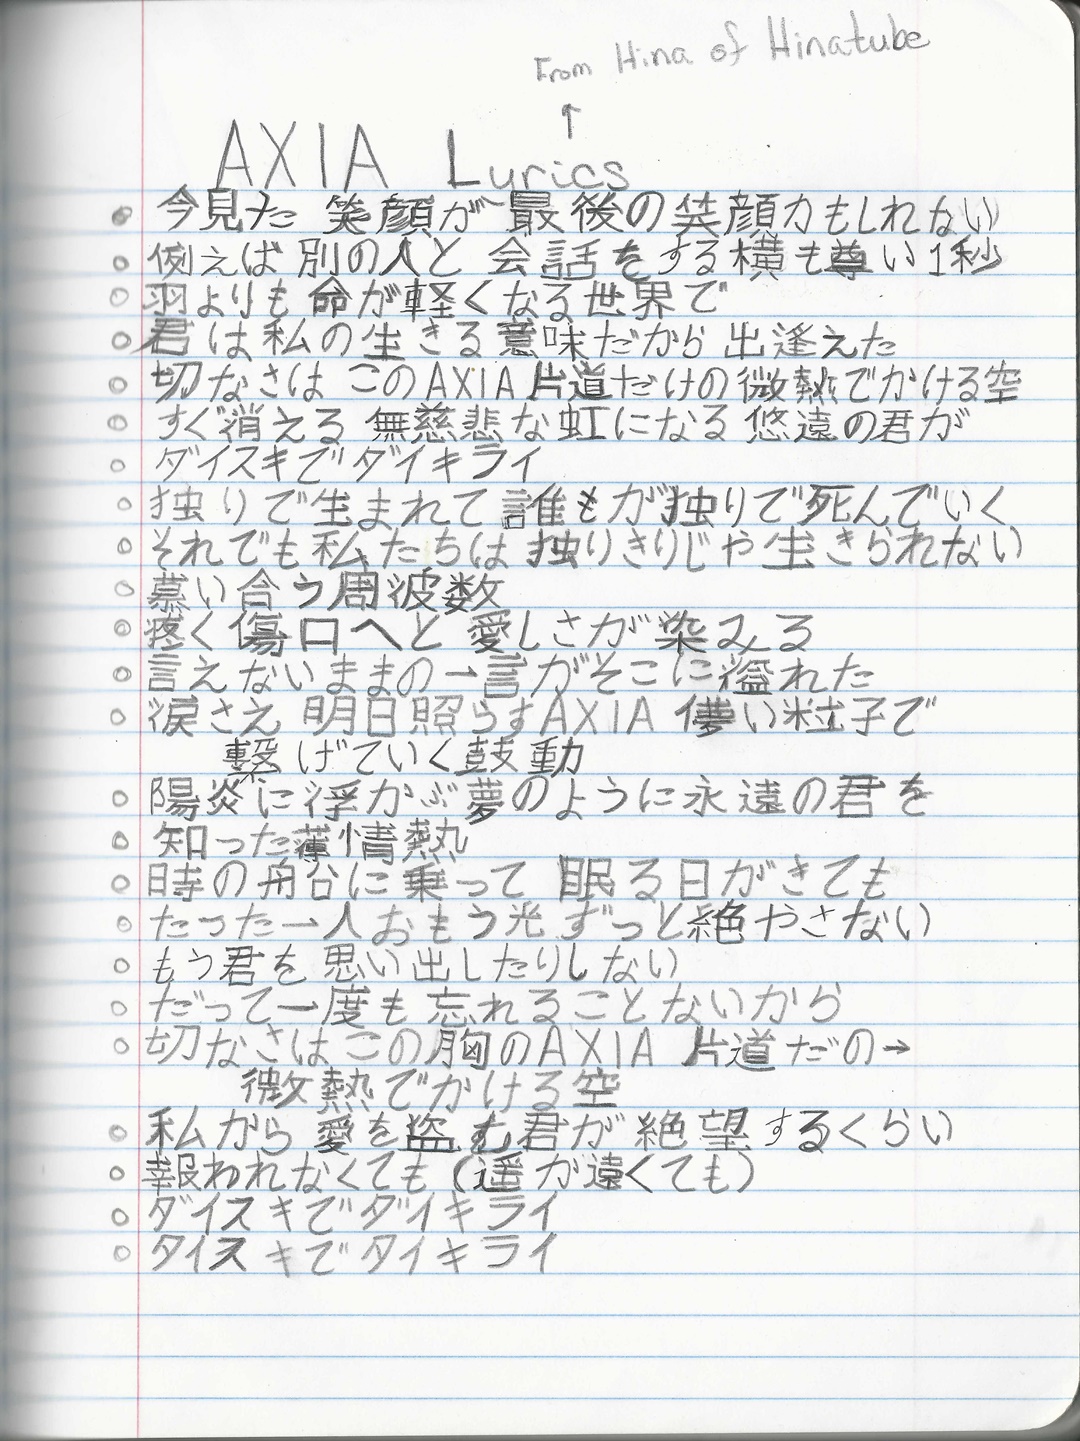 From Hina of Hinatube
↑
AXIA Lyrics
今見た 笑顔が 最後の笑顔カもしれない
例えば 別の人と 会話をする横も尊い1秒
羽よりも 命が軽くなる世界で
君は私の生きる意味だから 出逢えた
切なさは このAXIA 片道だけの微熱でかける空
すぐ消える 無慈悲な虹になる 悠遠の君が
ダイスキでダイキライ
独りで生まれて 誰もが独りで死んでいく
それでも私たちは 独りきりじゃ生きられない
慕い合う周波数
疼く傷口へと 愛しさが染みる
言えないままの一言がそこに溢れた
涙さえ 明日照らすAXIA 儚い粒子で
繋げていく鼓動
陽炎に浮かぶ夢のように永遠の君を
知った 情熱
時の舟台に乗って 眠る日がきても
たった一人おもう光ずっと絶やさない
もう君を 思い出したりしない
だって一度も忘れることないから
切なさはこの胸のAXIA 片道だの→
微熱でかける空
私から 愛を盗む君が絶望するくらい
報われなくても(遥が遠くても)
ダイスキでダイキライ
タイスキでタイキライ